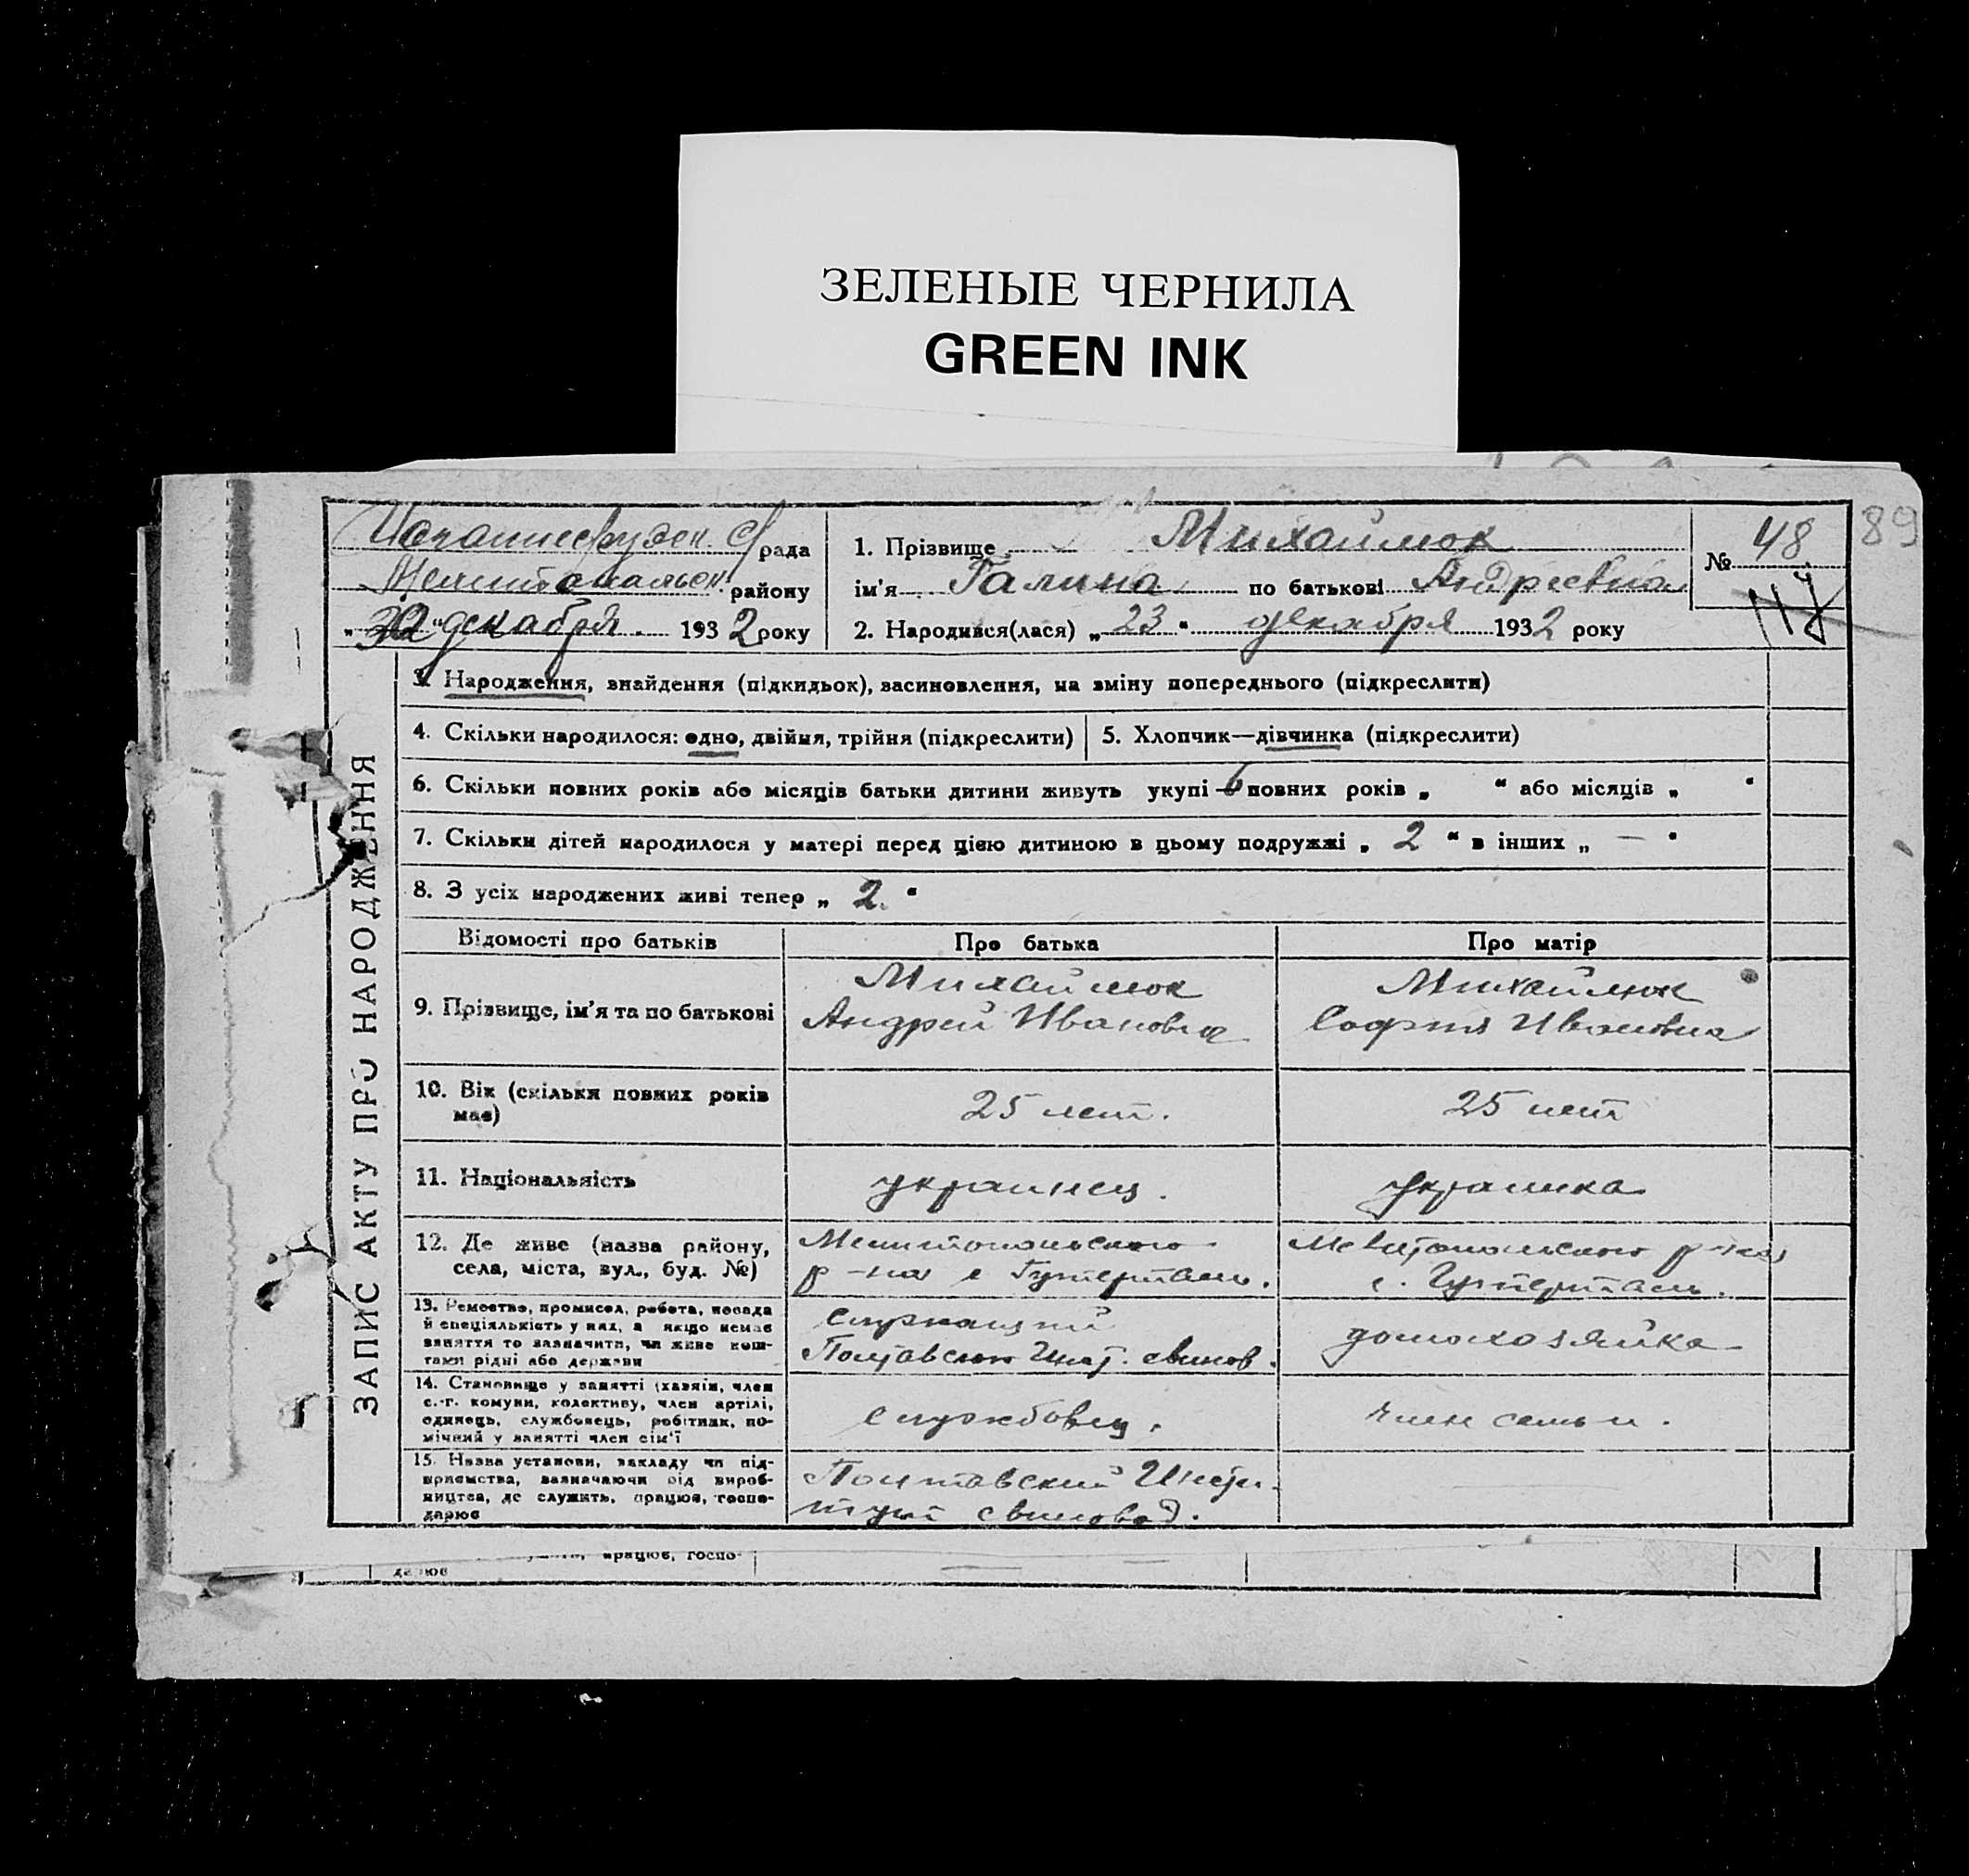 ЗЕЛЕНЫЕ ЧЕРНИЛА
GREEN INK
89
рада
району
"30" декабря. 1932 року
1. Прізвище Михайлюк
ім'я Галина по батькові Андреевна
2. Народився(лася) „23" декабря 1932 року
№ 48
ЗАПИС АКТУ ПРО НАРОДЖЕННЯ
3. Народження, знайдення (підкидьок), засиновлення, на зміну попереднього (підкреслити)
4. Скільки народилося: одно, двійня, трійня (підкреслити)
5. Хлопчик—дівчинка (підкреслити)
6. Скільки повних років або місяців батьки дитини живуть укупі 6 повних років „ " або місяців „ "
7. Скільки дітей народилося у матері перед цією дитиною в цьому подружжі „ 2 " в інших „ — "
8. З усіх народжених живі тепер „ 2. "
Відомості про батьків
Про батька
Про матір
9. Прізвище, ім'я та по батькові
Михайлюк
Андрей Иванович
Михайлюк
София Ивановна
10. Вік (скільки повних років
має)
25 лет.
25 лет
11. Національність
украинец.
украинка
12. Де живе (назва району,
села, міста, вул., буд. №)
Мелитопольского
р-на с Гутерталь.
Мелитопольского р-на
с. Гутерталь.
13. Ремество, промисел, робота, посада
й спеціяльність у них, а якщо немає
заняття то зазначити, чи живе кош-
тами рідні або держави
Служащий
Полтавский Инст. свинов.
домохозяйка
14. Становище у занятті (хазяїн, член
с.-г. комуни, колективу, член артілі,
одинець, службовець, робітник, по-
мічний у занятті член сім'ї
службовец.
член семьи.
15. Назва установи, закладу чи під-
приємства, зазначаючи рід вироб-
ництва, де служить, працює, госпо-
дарює
Полтавский Инсти-
тут свиновод.
працює, госпо-
дарює